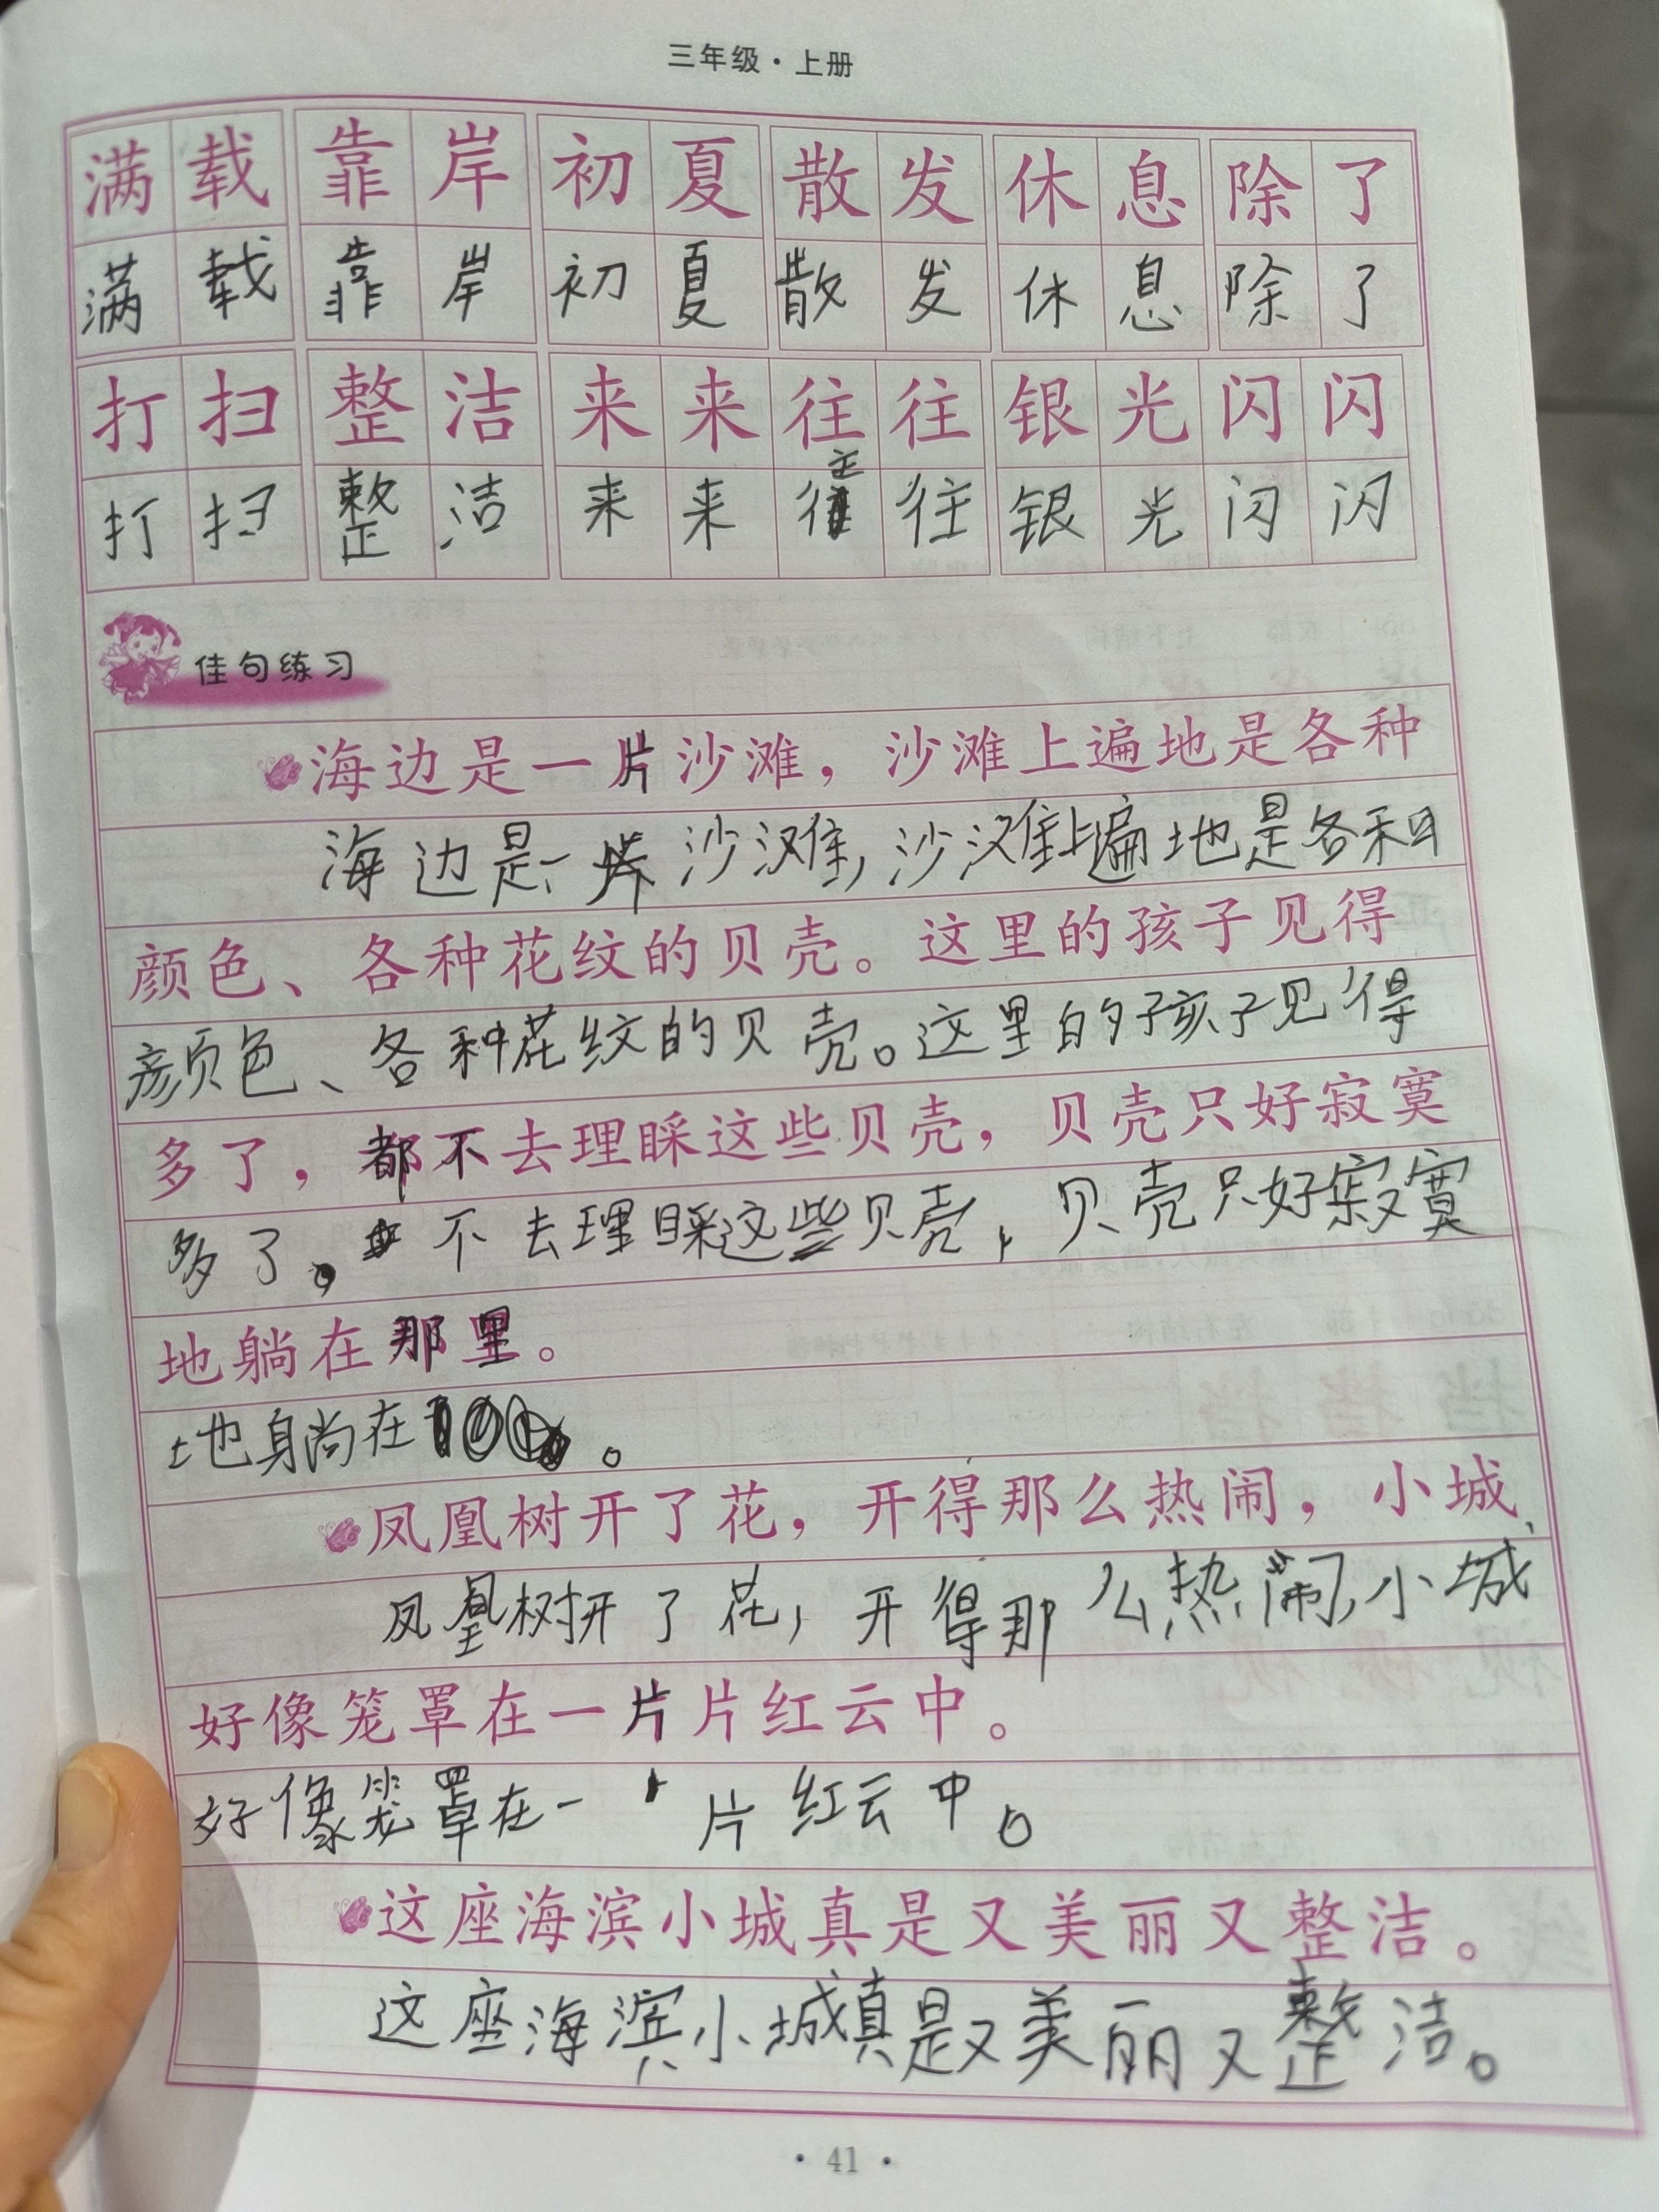 三年级·上册
满载 靠岸 初夏 散发 休息 除了
满载 靠岸 初夏 散发 休息 除了
打扫 整洁 来来往往 银光闪闪
打扫 整洁 来来往往 银光闪闪
佳句练习
海边是一片沙滩，沙滩上遍地是各种
海边是一片沙滩，沙滩上遍地是各种
颜色、各种花纹的贝壳。这里的孩子见得
颜色、各种花纹的贝壳。这里的孩子见得
多了，都不去理睬这些贝壳，贝壳只好寂寞
多了，不去理睬这些贝壳，贝壳只好寂寞
地躺在那里。
地躺在。
凤凰树开了花，开得那么热闹，小城
凤凰树开了花，开得那么热闹，小城
好像笼罩在一片片红云中。
好像笼罩在一片红云中。
这座海滨小城真是又美丽又整洁。
这座海滨小城真是又美丽又整洁。
·41·